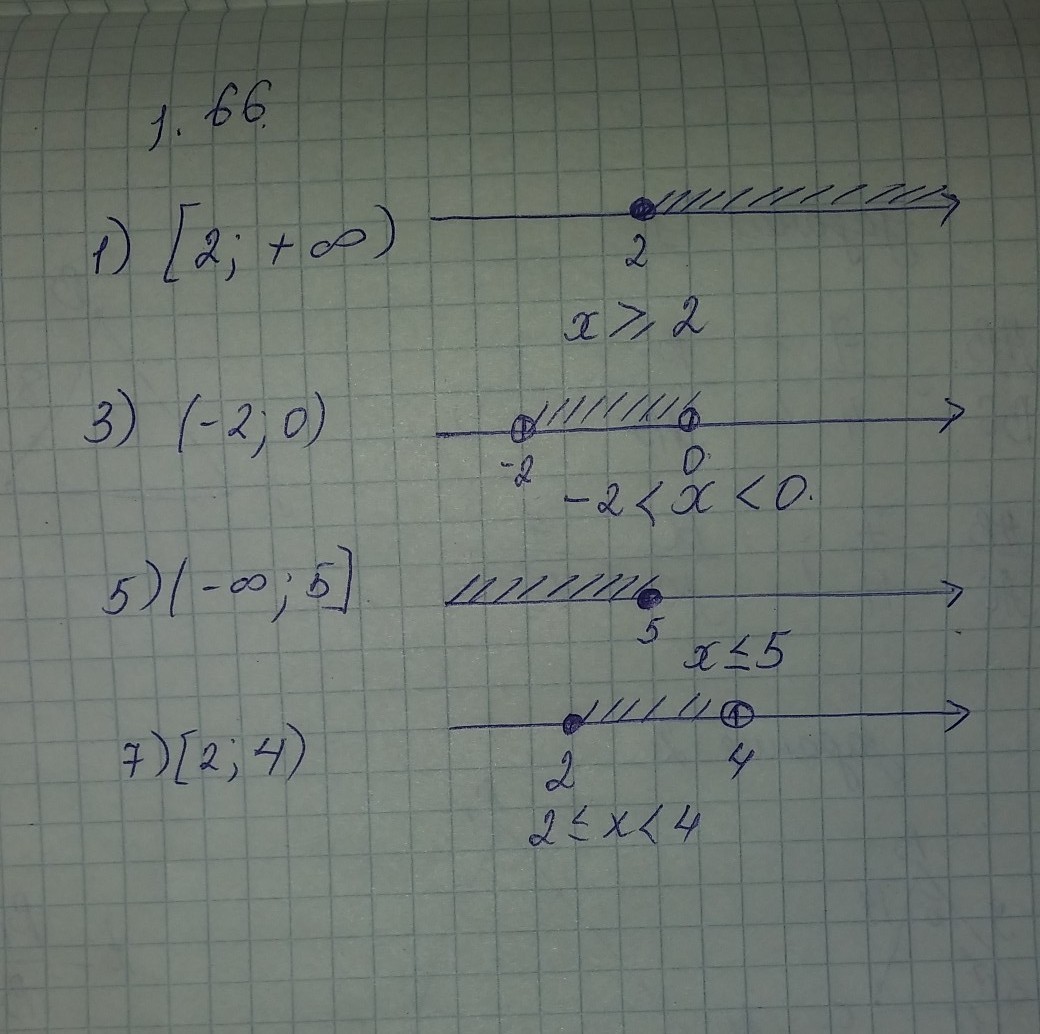 1. 66.
1) [2; +∞)
2
x ⩾ 2
3) (-2; 0)
-2 0
-2 < x < 0.
5) (-∞; 5]
5
x ≤ 5
7) [2; 4)
2 4
2 ≤ x < 4